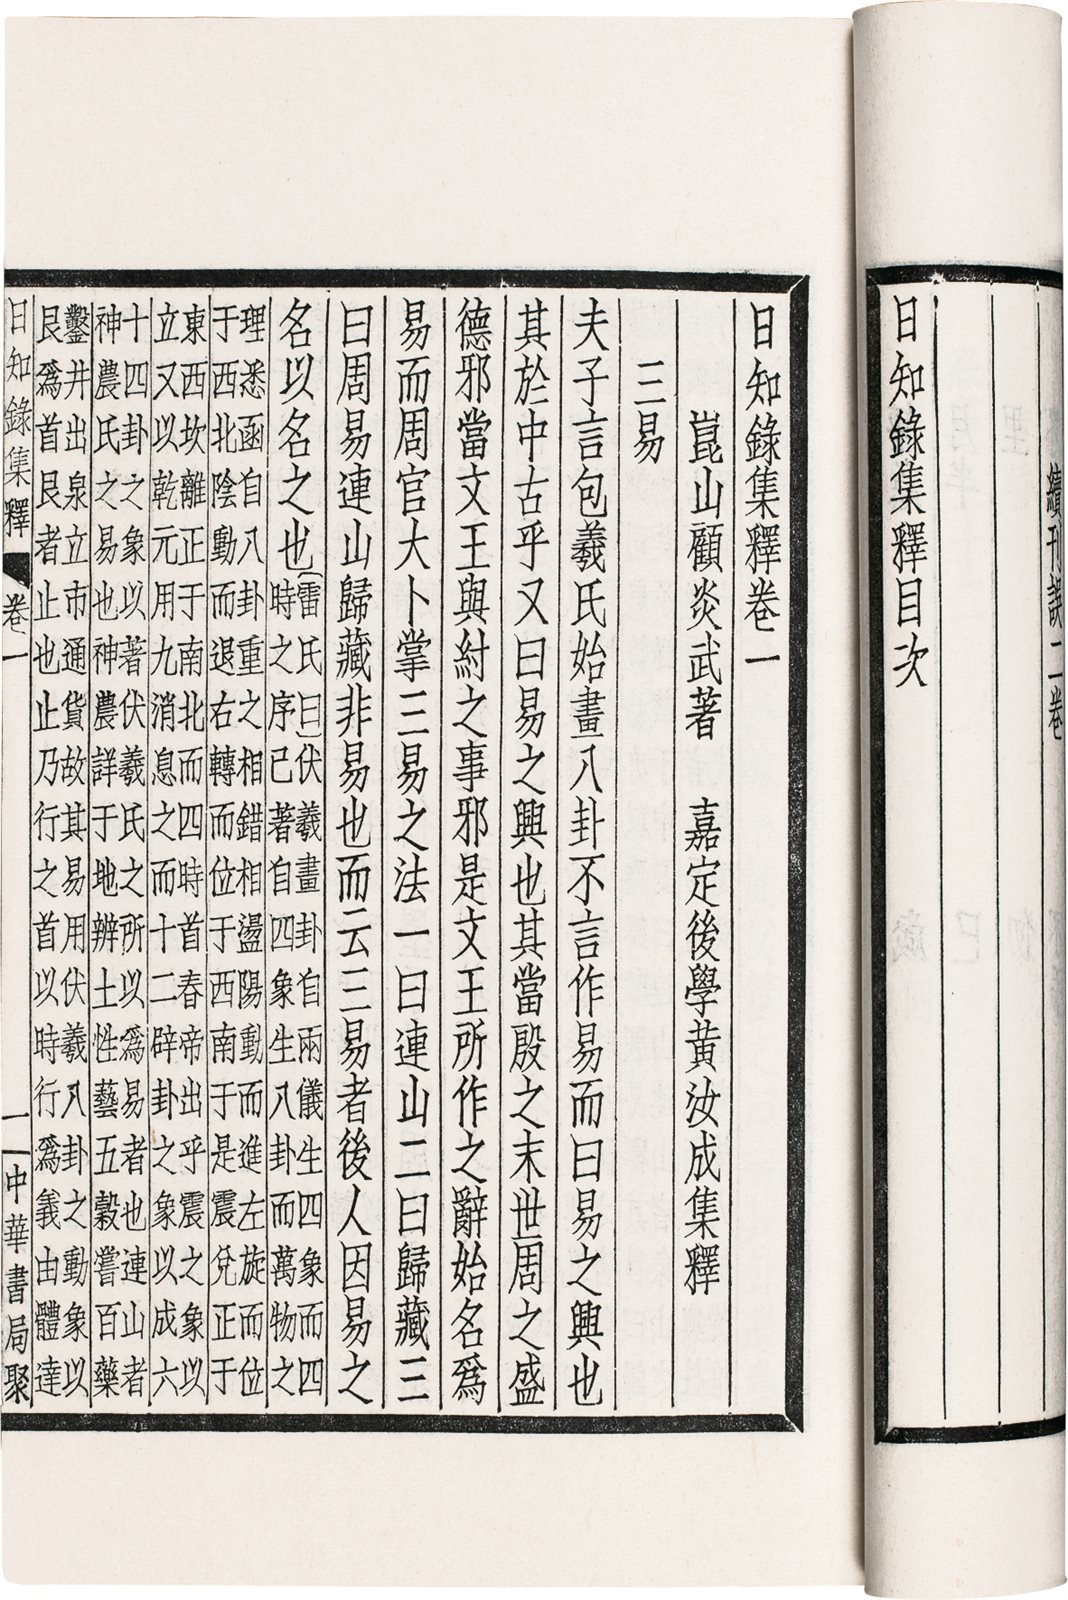 續刊誤二卷
日知錄集釋目次
日知錄集釋卷一
崑山顧炎武著　嘉定後學黃汝成集釋
三易
夫子言包羲氏始畫八卦不言作易而曰易之興也
其於中古乎又曰易之興也其當殷之末世周之盛
德邪當文王與紂之事邪是文王所作之辭始名為
易而周官大卜掌三易之法一曰連山二曰歸藏三
曰周易連山歸藏非易也而云三易者後人因易之
名以名之也
(雷氏曰)伏羲畫卦自兩儀生四象而四
時之序已著自四象生八卦而萬物之
理悉函自八卦重之相錯相盪陽動而進左旋而位
于西北陰動而退右轉而位于西南于是震兌正于
東西坎離正于南北而四時首春帝出乎震之象以
立又以乾元用九消息之而十二辟卦之象以成六
十四卦之象以著伏羲氏之所以為易者也連山者
神農氏之易也神農詳于地辨土性藝五穀嘗百藥
鑿井出泉立市通貨故其易用伏羲八卦之動象以
艮為首艮者止也止乃行之首以時行為義由體達
日知錄集釋　卷一　一　中華書局聚